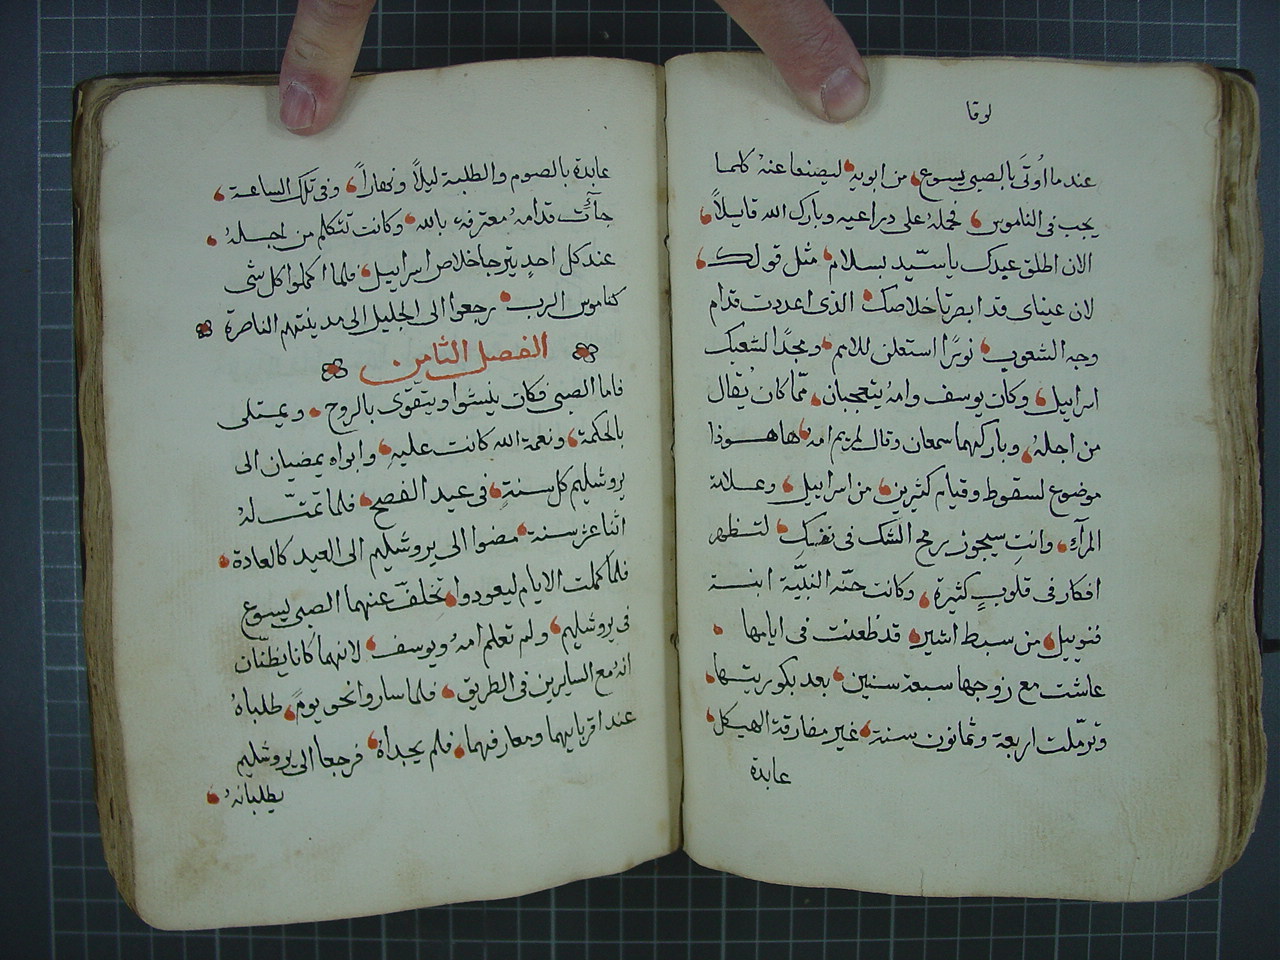 لوقا
عندما اُوتَى بالصبى يسوع من ابويه ليصنعا عنهُ كلما
يجب فى الناموس فحملهُ على دراعيه وبارك الله قايلاً
الان اطلق عبدك ياسيّد بسلام مثل قولك
لان عيناى قد ابصرتا خلاصك الذى اعددت قدام
وجه الشعوب نورًا استعلن للامم ومجدًا لشعبك
اسراييل وكان يوسف وامهُ يتعجبان ممّا كان يُقال
من اجلهُ وباركهما سمعان وقال لمريم امهُ ها هوذا
موضوع لسقوط وقيام كثيرين من اسراييل وعلامة
المرآءِ وانتِ سيجوز رمح الشك فى نفسكِ لتظهر
افكار فى قلوبٍ كثيرة وكانت حنّه النبيَّة ابنة
فنوييل من سبط اشير قد طعنت فى ايامها
عاشت مع زوجها سبعة سنين بعد بكوريتها
وترمّلت اربعة وثمانون سنة غير مفارقة الهيكل
عابدة
عابدة بالصوم والطلبة ليلاً ونهاراً وفى تلك الساعة
جآت قدامهُ معترفة بالله وكانت تتكلم من اجلهُ
عند كل احدٍ يترجا خلاص اسراييل فلما اكملوا كل شى
كناموس الرب رجعوا الى الجليل الى مدينتهم الناصرة
الفصل الثامن
فاما الصبى فكان ينشوا ويتقوّى بالروح ويمتلى
بالحكمة ونعمة الله كانت عليهِ وابواه يمضيان الى
يروشليم كل سنةٍ فى عيد الفصح فلما تمتّ لهُ
اثناعشر سنة مضوا الى يروشليم الى العيد كالعادة
فلما كملت الايام ليعودوا تخلفّ عنهما الصبى يسوع
فى يروشليم ولم تعلم امهُ ويوسف لانهما كانا يظنّان
انهُ مع السايرين فى الطريق فلما ساروا نحو يومً طلباهُ
عند اقرباييهما ومعارفهما فلم يجداهُ فرجعا الى يروشليم
يطلبانهُ